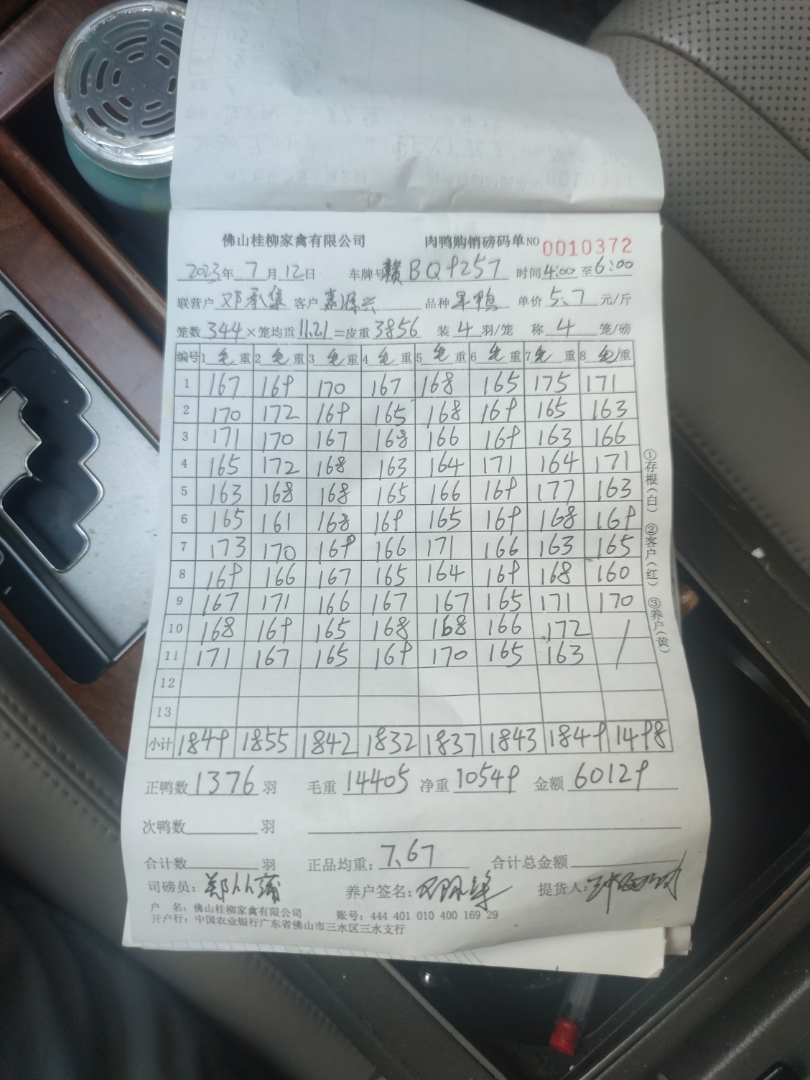 佛山桂柳家禽有限公司 肉鸭购销磅码单 NO 0010372
2023年 7月 12日 车牌号 赣BQ9257 时间 4:00 至 6:00
联营户 邓承集 客户 品种 单价 5.7 元/斤
笼数 344 × 笼均重 11.21 = 皮重 3856 装 4 羽/笼 称 4 笼/磅
编号 1 毛重 2 毛重 3 毛重 4 毛重 5 毛重 6 毛重 7 毛重 8 毛重
1 167 169 170 167 168 165 175 171
2 170 172 169 165 168 169 165 163
3 171 170 167 168 166 169 163 166
4 165 172 168 163 164 171 164 171
5 163 168 168 165 166 169 177 163
6 165 161 168 169 165 169 168 169
7 173 170 169 166 171 166 163 165
8 169 166 167 165 164 169 168 160
9 167 171 166 167 167 165 171 170
10 168 169 165 168 168 166 172 /
11 171 167 165 169 170 165 163
12
13
小计 1849 1855 1842 1832 1837 1843 1849 1498
正鸭数 1376 羽 毛重 14405 净重 10549 金额 60129
次鸭数 羽
合计数 羽 正品均重: 7.67 合计总金额
司磅员: 养户签名: 提货人:
户 名: 佛山桂柳家禽有限公司 账号: 444 401 010 400 169 29
开户行: 中国农业银行广东省佛山市三水区三水支行
①存根(白) ②客户(红) ③养户(黄)